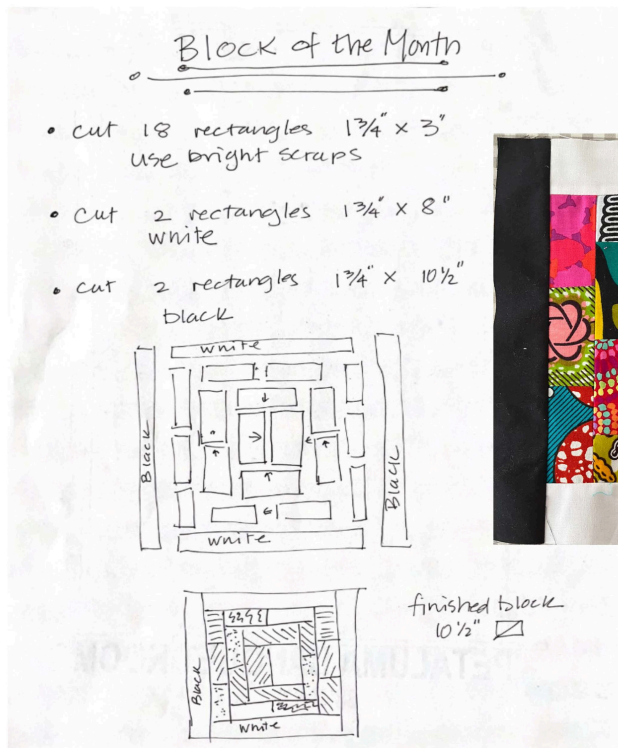 Block of the Month
• cut 18 rectangles 1¾" × 3"
use bright scraps
• cut 2 rectangles 1¾" × 8"
white
• cut 2 rectangles 1¾" × 10½"
black
white
Black
Black
white
finished block
10½"
Black
white